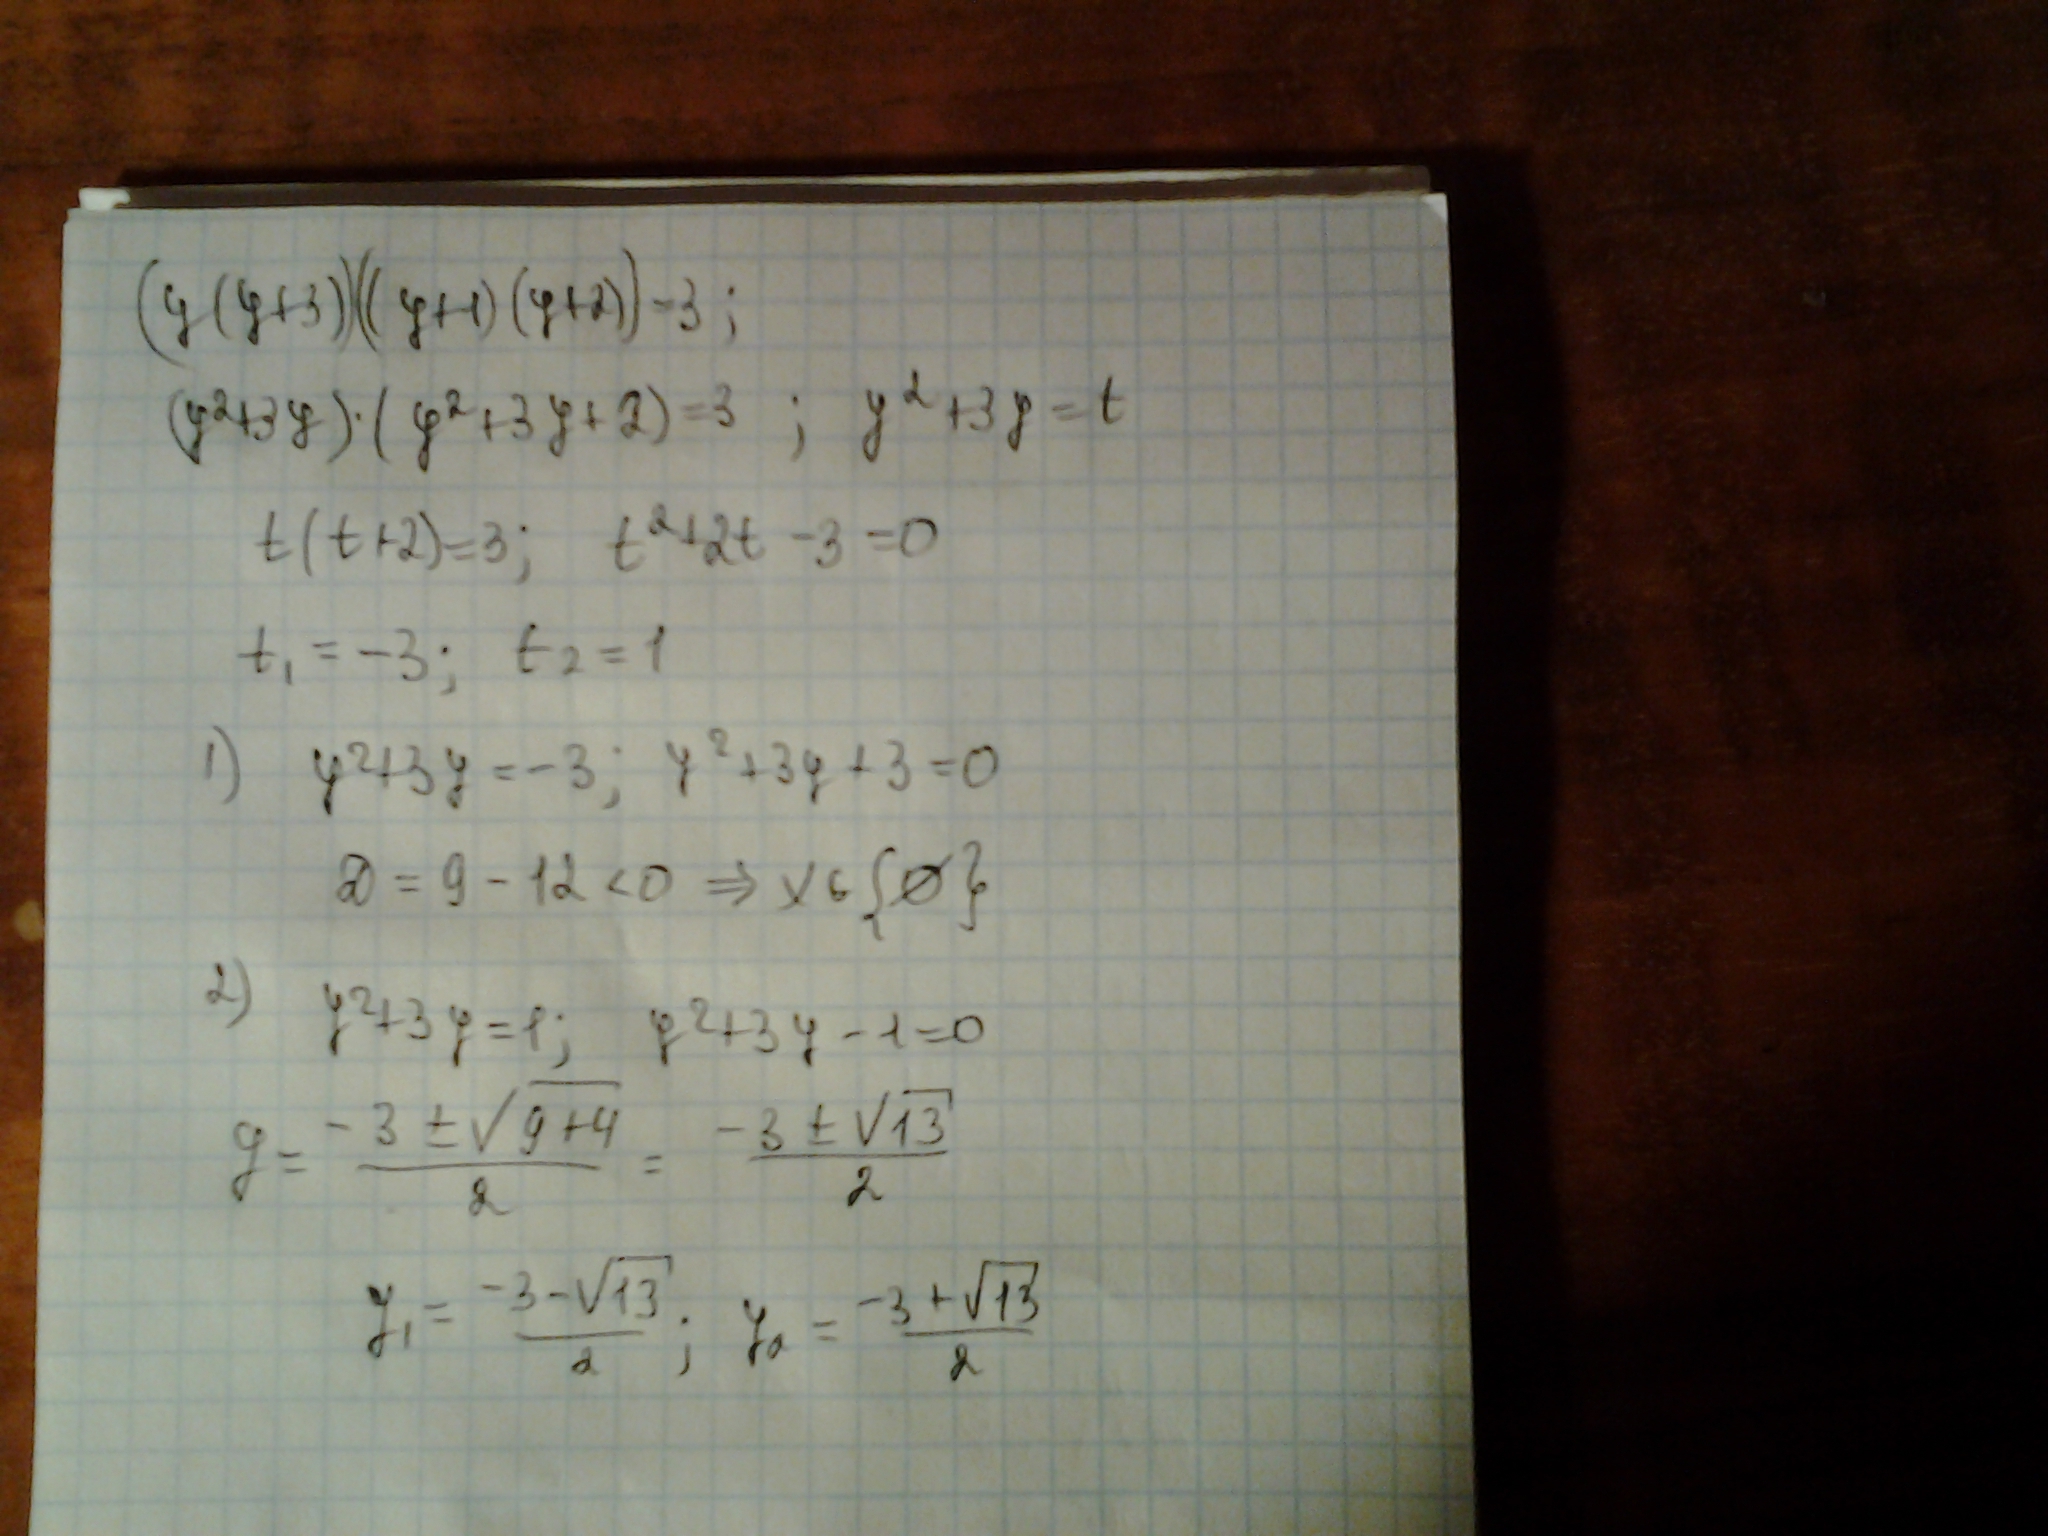 (y(y+3))((y+1)(y+2))=3;
(y²+3y)·(y²+3y+2)=3 ; y²+3y=t
t(t+2)=3; t²+2t-3=0
t₁=-3; t₂=1
1) y²+3y=-3; y²+3y+3=0
D=9-12<0 ⇒ x∈{∅}
2) y²+3y=1; y²+3y-1=0
y=(-3±√(9+4))/2=(-3±√13)/2
y₁=(-3-√13)/2; y₂=(-3+√13)/2